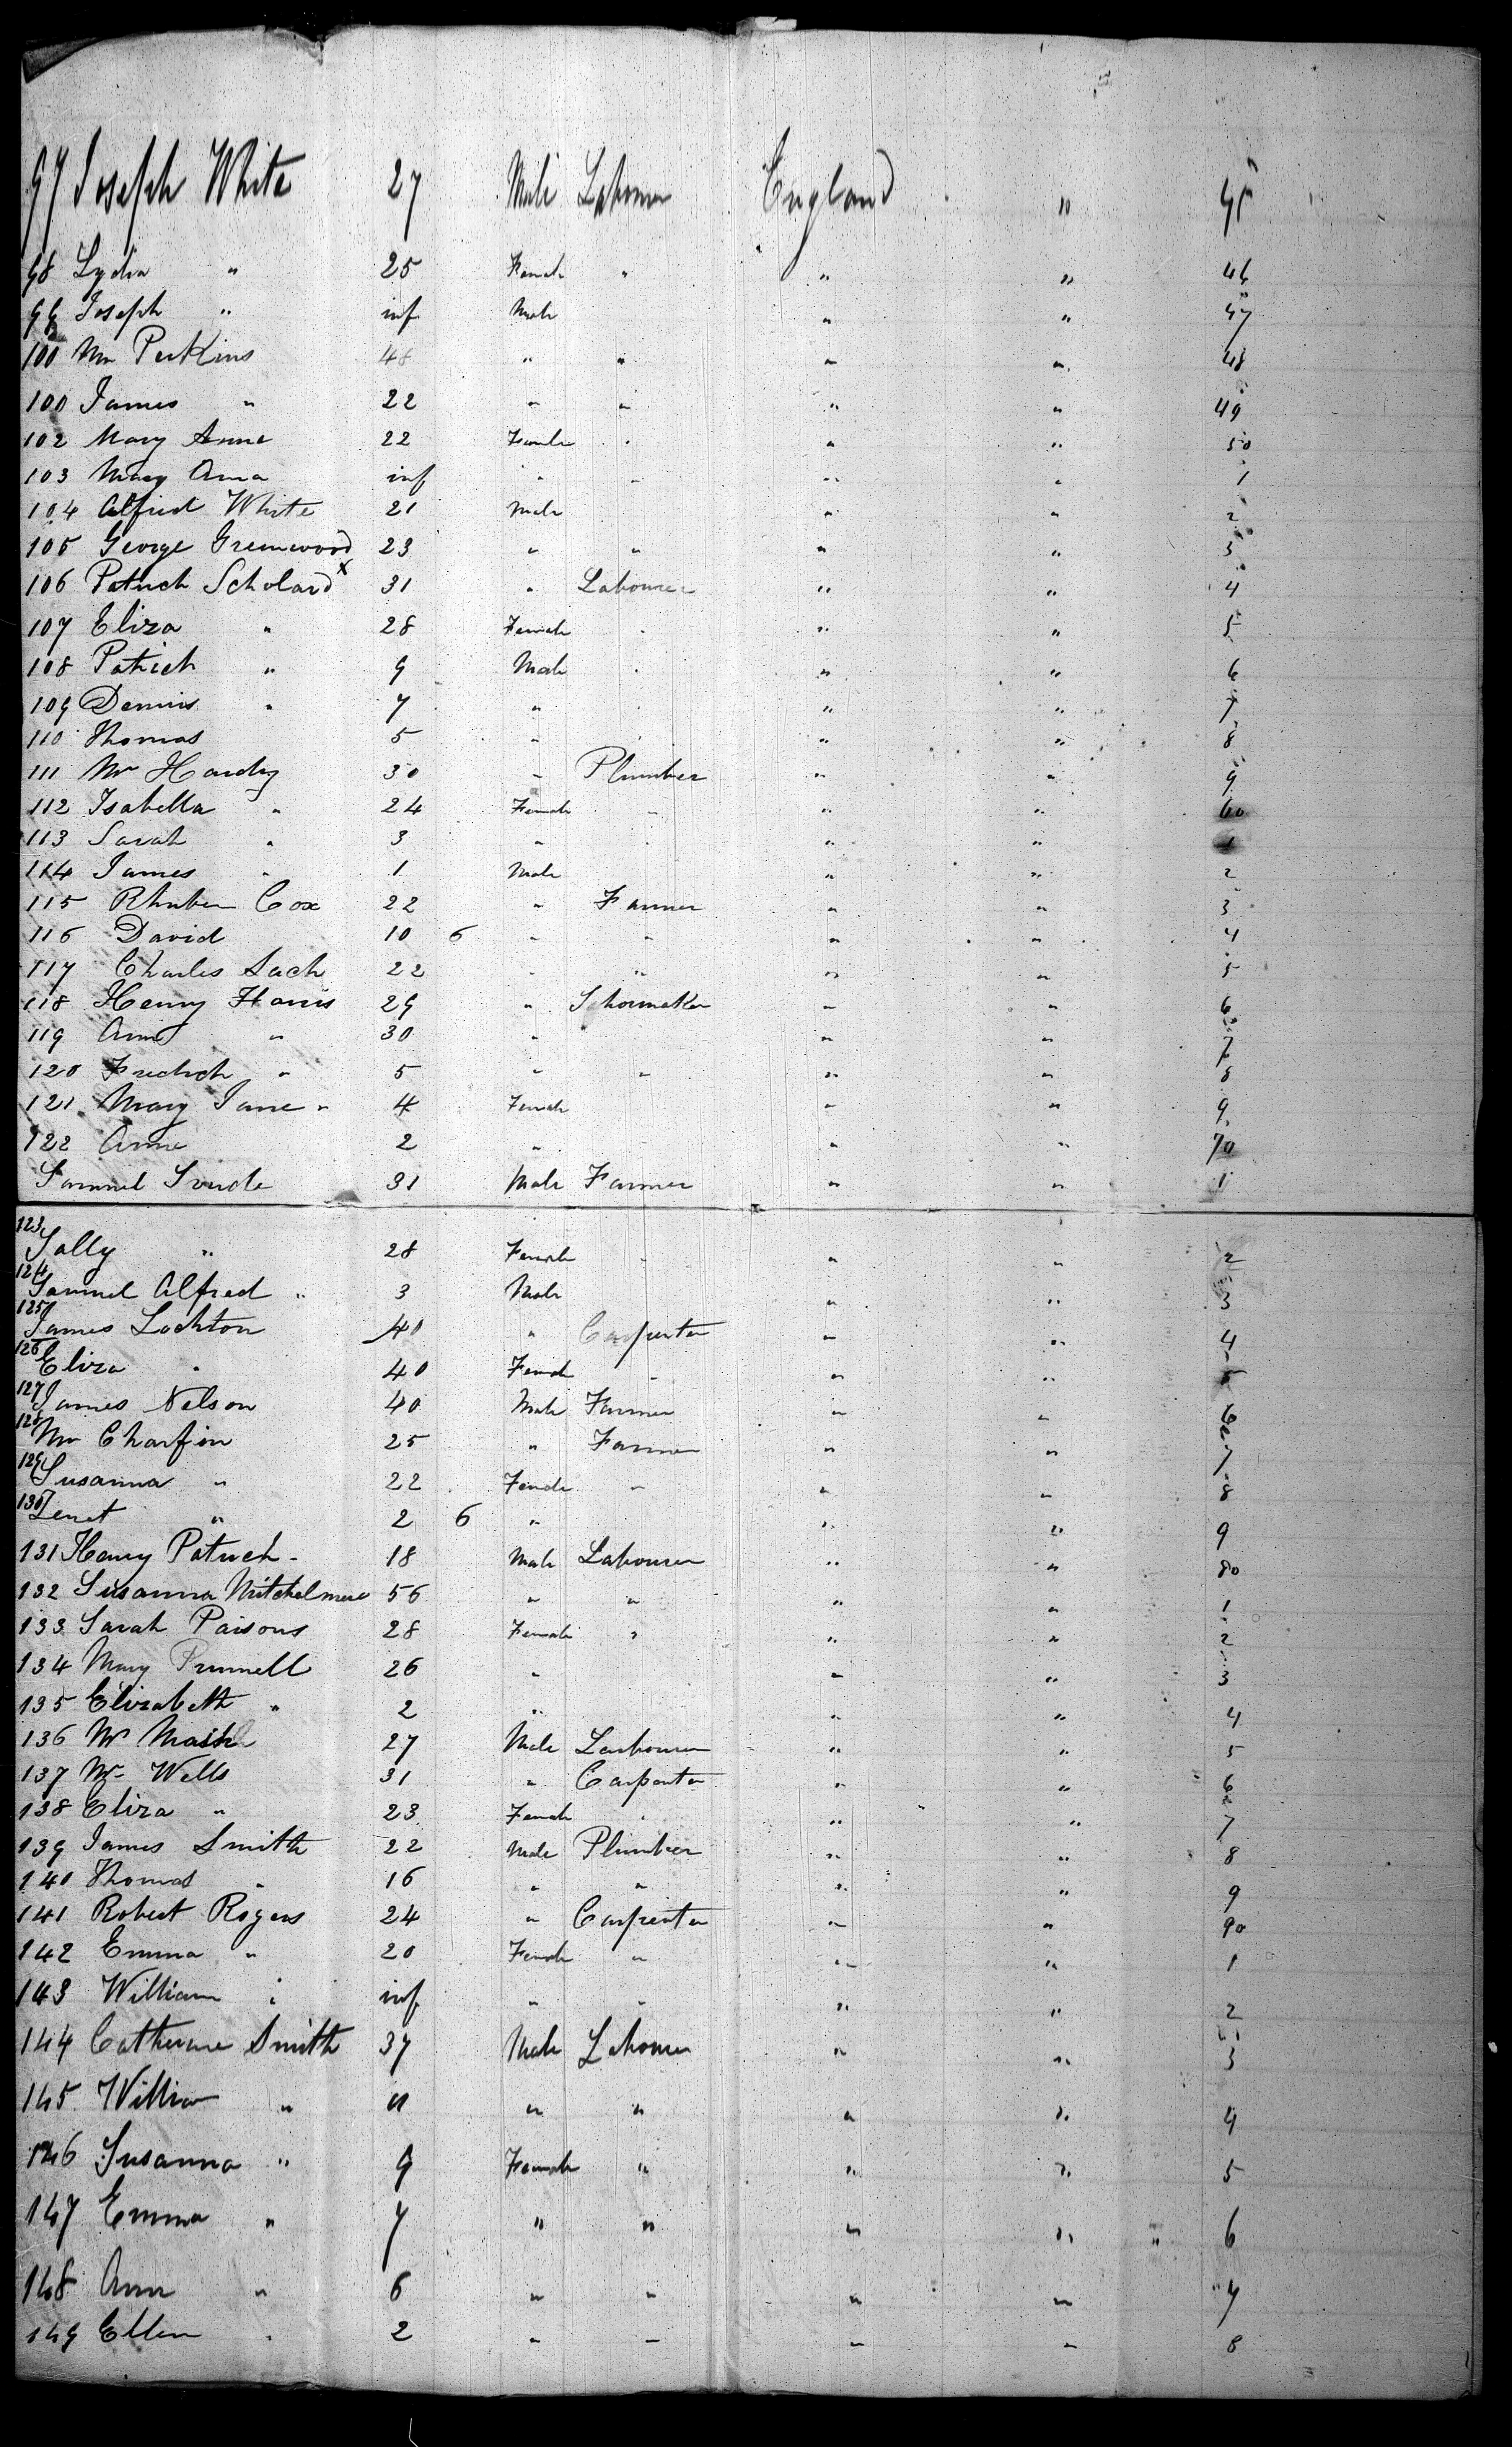 97 Joseph White 27 Male Labourer England " 45
98 Lydia " 25 Female " " " 46
99 Joseph " inf Male " " 47
100 Mr Perkins 48 " " " " 48
100 James " 22 " " " " 49
102 Mary Anne 22 Female " " " 50
103 Mary Anna inf " " " " 1
104 Alfred White 21 Male " " 2
105 George Greenwood 23 " " " " 3
106 Patrick Scholard x 31 " Labourer " " 4
107 Eliza " 28 Female " " " 5
108 Patrick " 9 Male " " " 6
109 Dennis " 7 " " " " 7
110 Thomas 5 " " " 8
111 Mr Hardy 30 " Plumber " " 9
112 Isabella " 24 Female " " " 60
113 Sarah " 3 " " " " 1
114 James " 1 Male " " 2
115 Rhuben Cox 22 " Farmer " " 3
116 David 10 6 " " " " 4
117 Charles Sach 22 " " " " 5
118 Henry Harris 29 " Schoumaker " " 6
119 Ann " 30 " " " 7
120 Fredrch " 5 " " " " 8
121 Mary Jane " 4 Female " " 9
122 Anne 2 " " " 70
Samuel Srude 31 Male Farmer " " 1
123 Sally " 28 Female " " " 2
124 Samuel Alfred " 3 Male " " 3
125 James Lochton 40 " Carpenter " " 4
126 Eliza " 40 Female " " " 5
127 James Nelson 40 Male Farmer " " 6
128 Mr Charfin 25 " Farmer " " 7
129 Susanna " 22 Female " " " 8
130 Lenet " 2 6 " " " 9
131 Henry Patrick - 18 Male Labourer " " 80
132 Susanna Mitchelmere 56 " " " " 1
133 Sarah Paisons 28 Female " " " 2
134 Mary Prunnell 26 " " " 3
135 Elizabeth " 2 " " " 4
136 Mr 27 Male Labourer " " 5
137 Mr Wells 31 " Carpenter " " 6
138 Eliza " 23 Female " " " 7
139 James Smith 22 Male Plumber " " 8
140 Thomas " 16 " " " " 9
141 Robert Rogers 24 " Carpenter " " 90
142 Emma " 20 Female " " " 1
143 William " inf " " " " 2
144 Catherine Smith 37 Male Labourer " " 3
145 William " 11 " " " " 4
146 Susanna " 9 Female " " " 5
147 Emma " 7 " " " " " 6
148 Ann " 6 " " " " " 7
149 Ellen " 2 " " " " 8